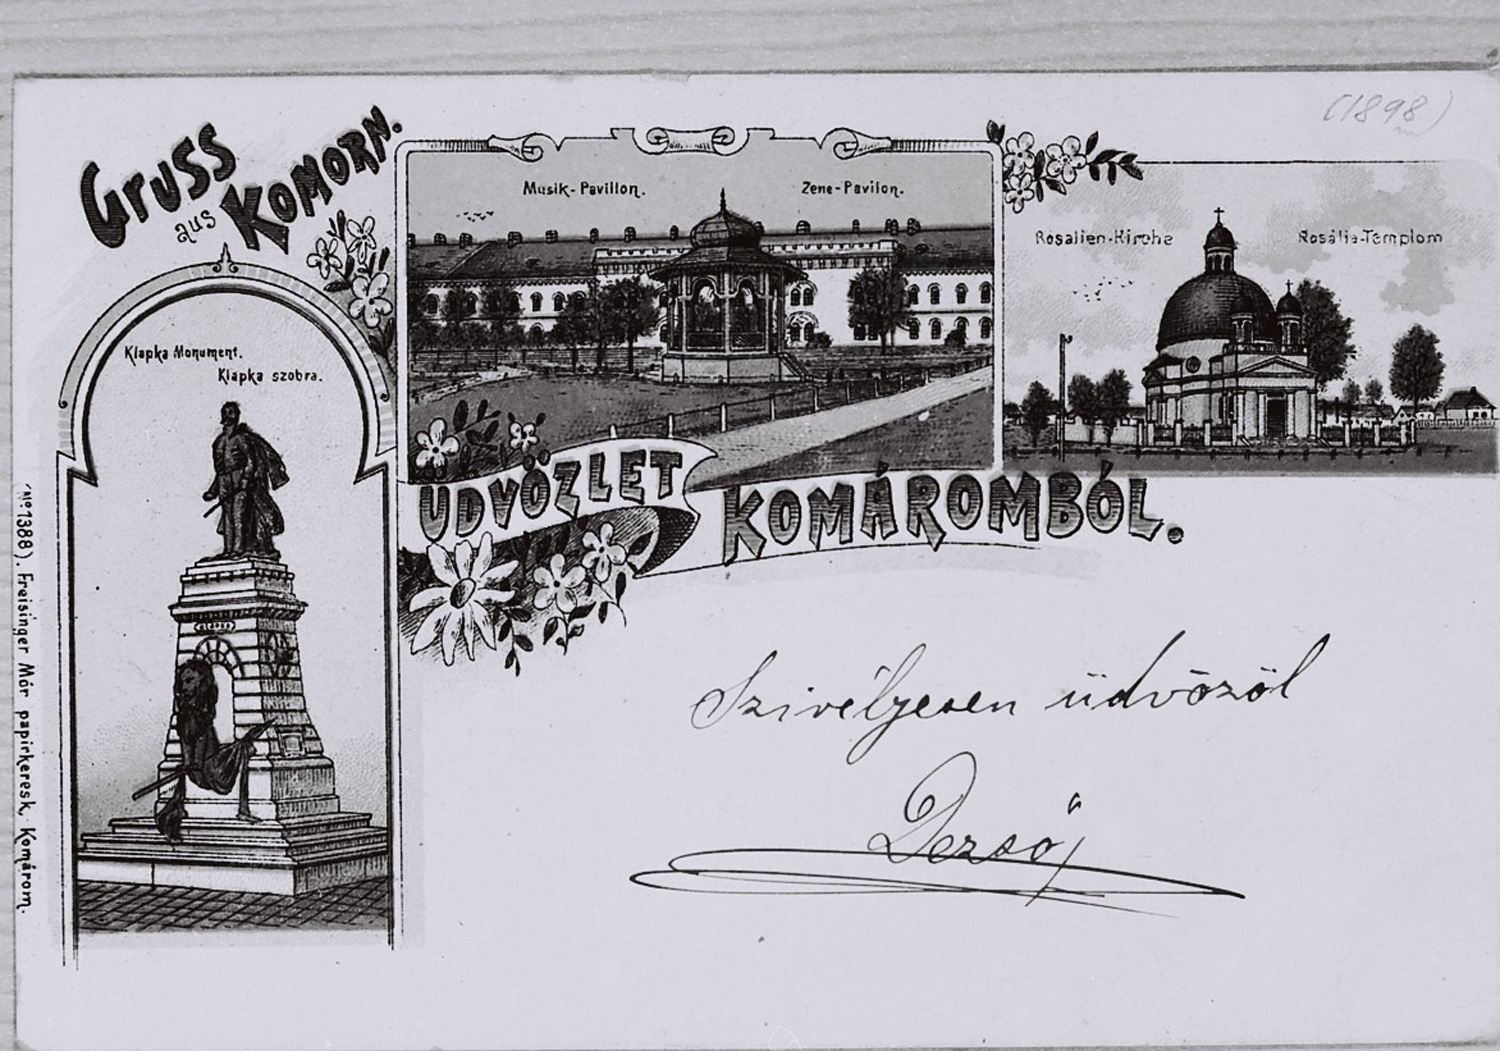 (1898)
Gruss
aus
Komorn.
Musik-Pavillon.
Zene-Pavilon.
Rosalien-Kirche
Rosália-Templom
Klapka Monument.
Klapka szobra.
ÜDVÖZLET
KOMÁROMBÓL.
Szivélyesen üdvözöl
(Nº 1388). Freisinger Mór papirkeresk, Komárom.